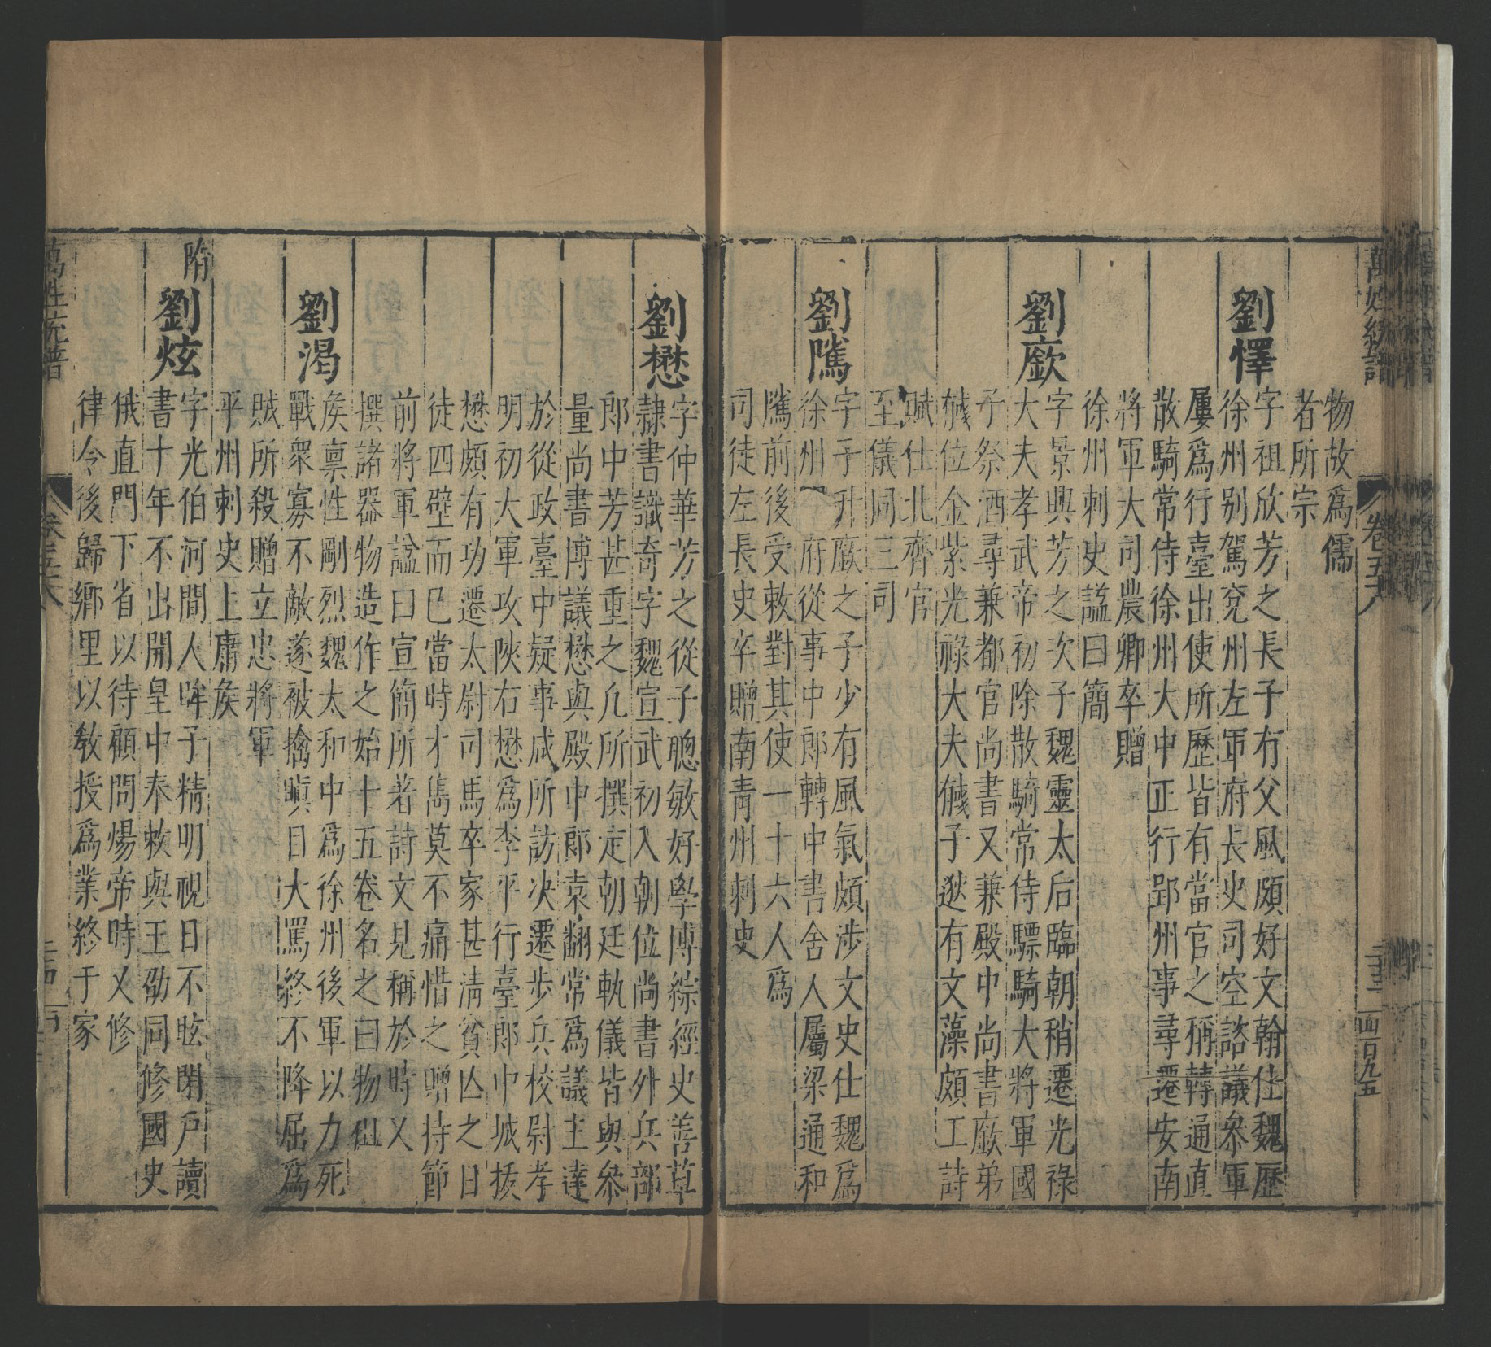 萬姓統譜
卷五十八
二十三
一百九五
物故爲儒
者所宗
劉懌
字祖欣芳之長子有父風頗好文翰仕魏歷
徐州别駕兖州左軍府長史司空諮議叅軍
屢爲行臺出使所歷皆有當官之稱轉通直
散騎常侍徐州大中正行郢州事尋遷安南
將軍大司農卿卒贈
徐州刺史謚曰簡
劉廞
字景興芳之次子魏靈太后臨朝稍遷光祿
大夫孝武帝初除散騎常侍驃騎大將軍國
子祭酒尋兼都官尚書又兼殿中尚書廞弟
䬑位金紫光祿大夫䬑子逖有文藻頗工詩
賦仕北齊官
至儀同三司
劉騭
字子升廞之子少有風氣頗涉文史仕魏爲
徐州府從事中郎轉中書舍人屬梁通和
騭前後受敕對其使一十六人爲
司徒左長史卒贈南青州刺史
劉懋
字仲華芳之從子聰敏好學博綜經史善草
隷書識奇字魏宣武初入朝位尚書外兵部
郎中芳甚重之凡所撰定朝廷軌儀皆與叅
量尚書博議懋與殿中郎袁翻常爲議主達
於從政臺中疑事咸所訪决遷步兵校尉孝
明初大軍攻硤石懋爲李平行臺郎中城拔
懋頗有功遷太尉司馬卒家甚清貧亡之日
徒四壁而已當時才雋莫不痛惜之贈持節
前將軍謚曰宣簡所著詩文見稱於時又
撰諸器物造作之始十五卷名之曰物祖
劉渴
矦禀性剛烈魏太和中爲徐州後軍以力死
戰衆寡不敵遂被擒瞋目大罵終不降屈爲
賊所殺贈立忠將軍
平州刺史上庸矦
隋
劉炫
字光伯河間人眸子精明視日不眩閉户讀
書十年不出開皇中奉敕與王劭同修國史
俄直門下省以待顧問煬帝時又修
律令後歸鄉里以敎授爲業終于家
萬姓統譜
卷五十八
二十四